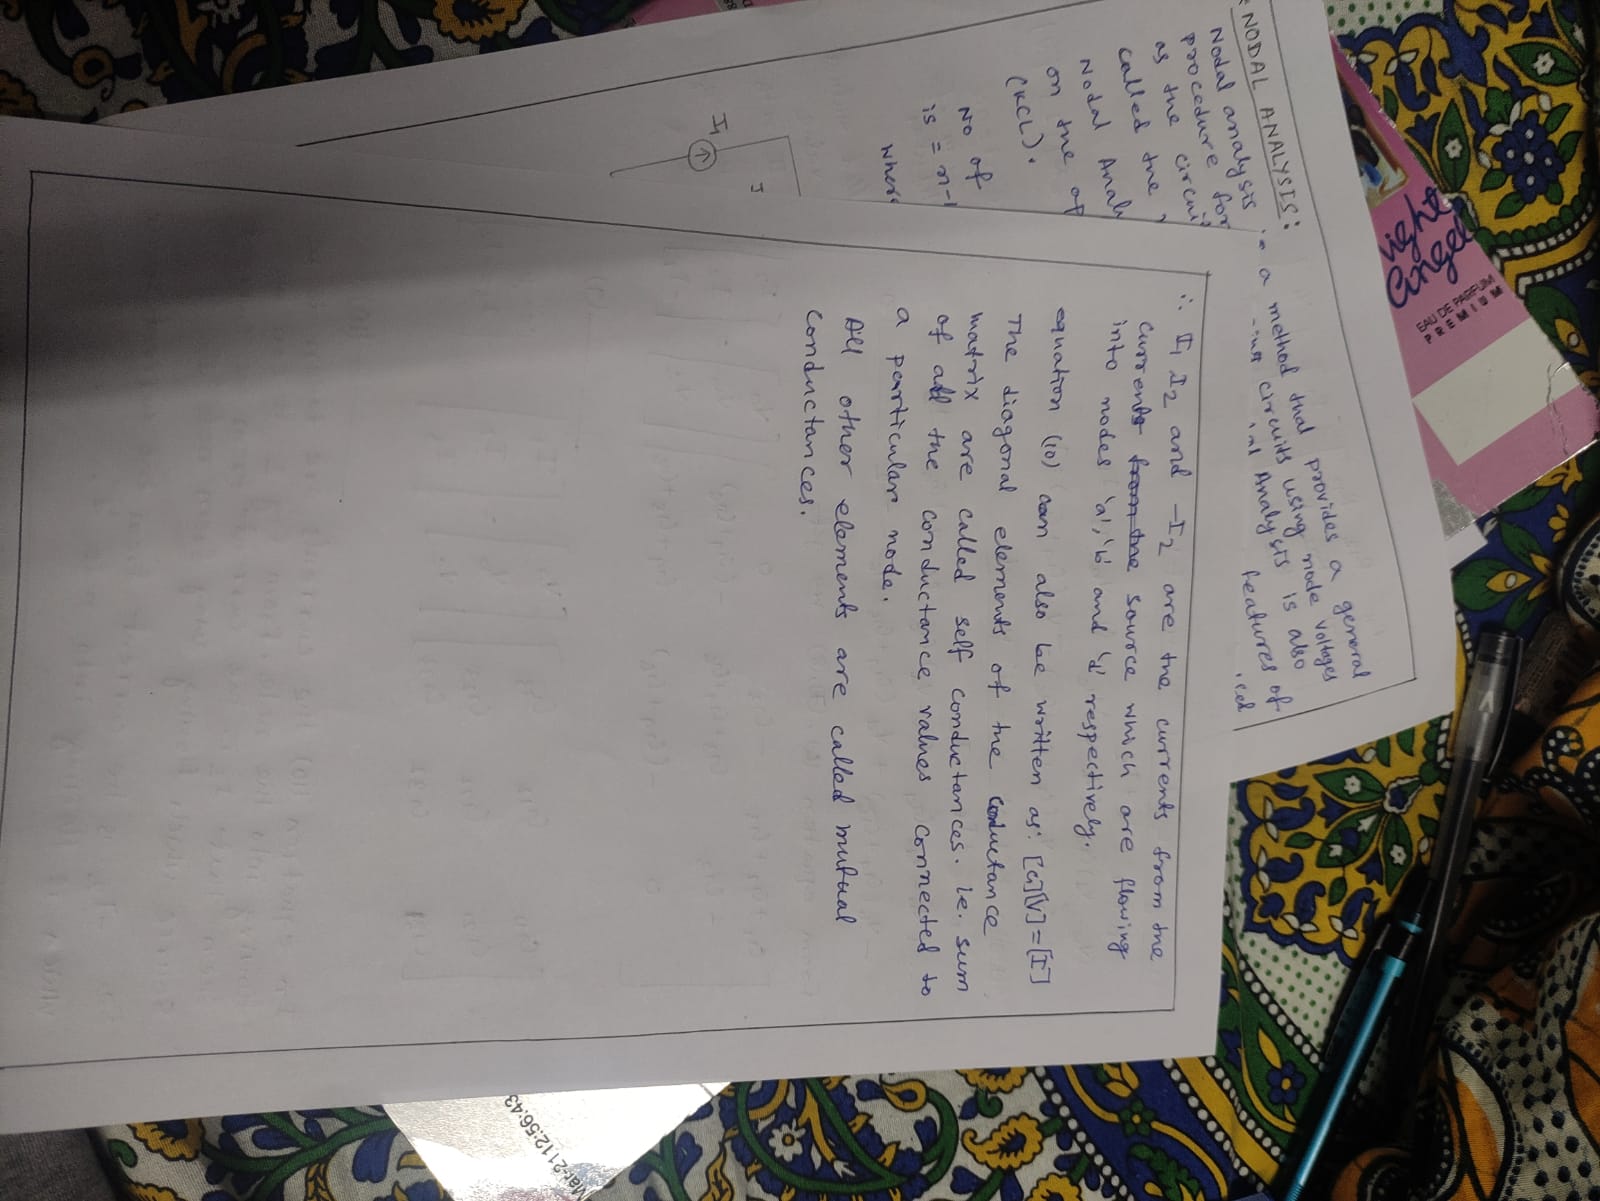 EAU DE PARFUM
PREMIUM
NODAL ANALYSIS:
Nodal analysis is a method that provides a general
procedure for circuits using node voltages
as the circui Analysis is also
called the features of
Nodal Analy
on the ap
(KCL).
No of
is = n-1
where
I
I1
∴ I1 I2 and -I2 are the currents from the
currents from the source which are flowing
into nodes 'a', 'b' and 'd' respectively.
equation (10) can also be written as: [G][V]=[I]
The diagonal elements of the conductance
matrix are called self conductances. ie. sum
of all the conductance values connected to
a particular node.
All other elements are called mutual
conductances.
Mar-2112:56:43